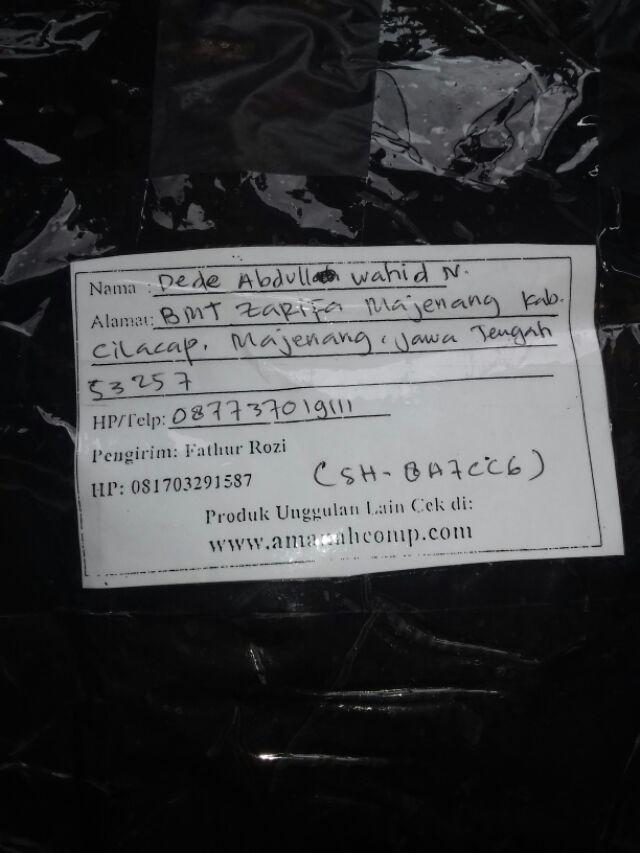 Nama : Dede Abdullah Wahid N.
Alamat: BMT Zarifa Majenang Kab.
Cilacap. Majenang, Jawa Tengah
53257
HP/Telp: 087737019111
Pengirim: Fathur Rozi
HP: 081703291587 (SH-8A7CC6)
Produk Unggulan Lain Cek di:
www.amanahcomp.com